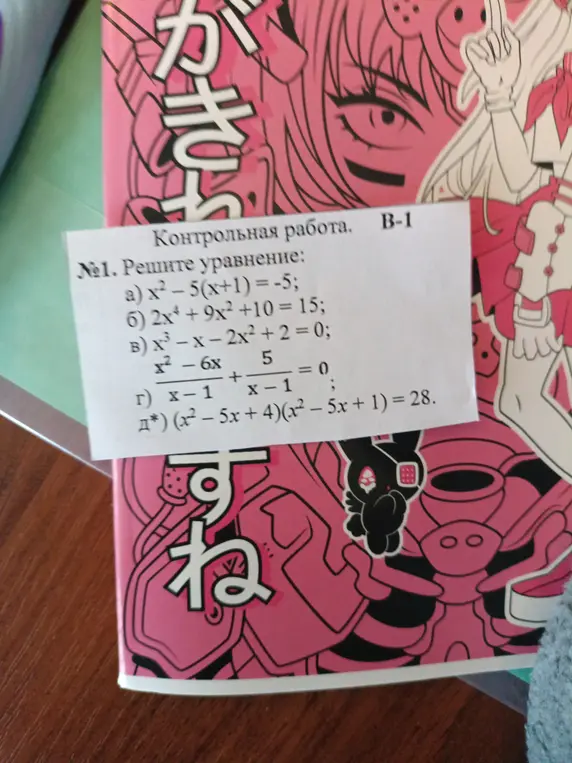 がきわ
Контрольная работа. В-1
№1. Решите уравнение:
а) x² – 5(x+1) = -5;
б) 2x⁴ + 9x² +10 = 15;
в) x³ – x – 2x² + 2 = 0;
г) \frac{x² – 6x}{x – 1} + \frac{5}{x – 1} = 0 ;
д*) (x² – 5x + 4)(x² – 5x + 1) = 28.
すね